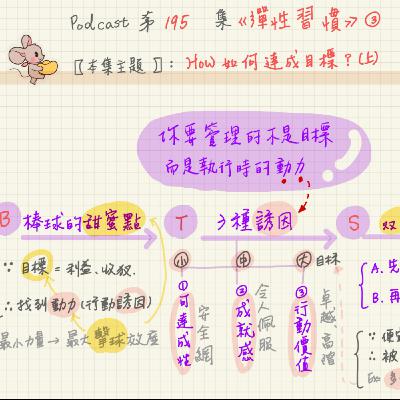 Podcast 第 195 集《彈性習慣》③
〖本集主題〗: How 如何達成目標?(上)
你要管理的不是目標
而是執行時的動力
B 棒球的甜蜜點
T 3種誘因
S 双
∵ 目標 = 利益.收获.
∴ 找到動力(行動誘因)
最小力量 → 最大擊球效應
小 中 大 目標
①可達成性
安全網
②成就感
令人佩服
③行動價值
卓越高階
A. 先
B. 再
∵ 便
∴ 被
Ex: 多